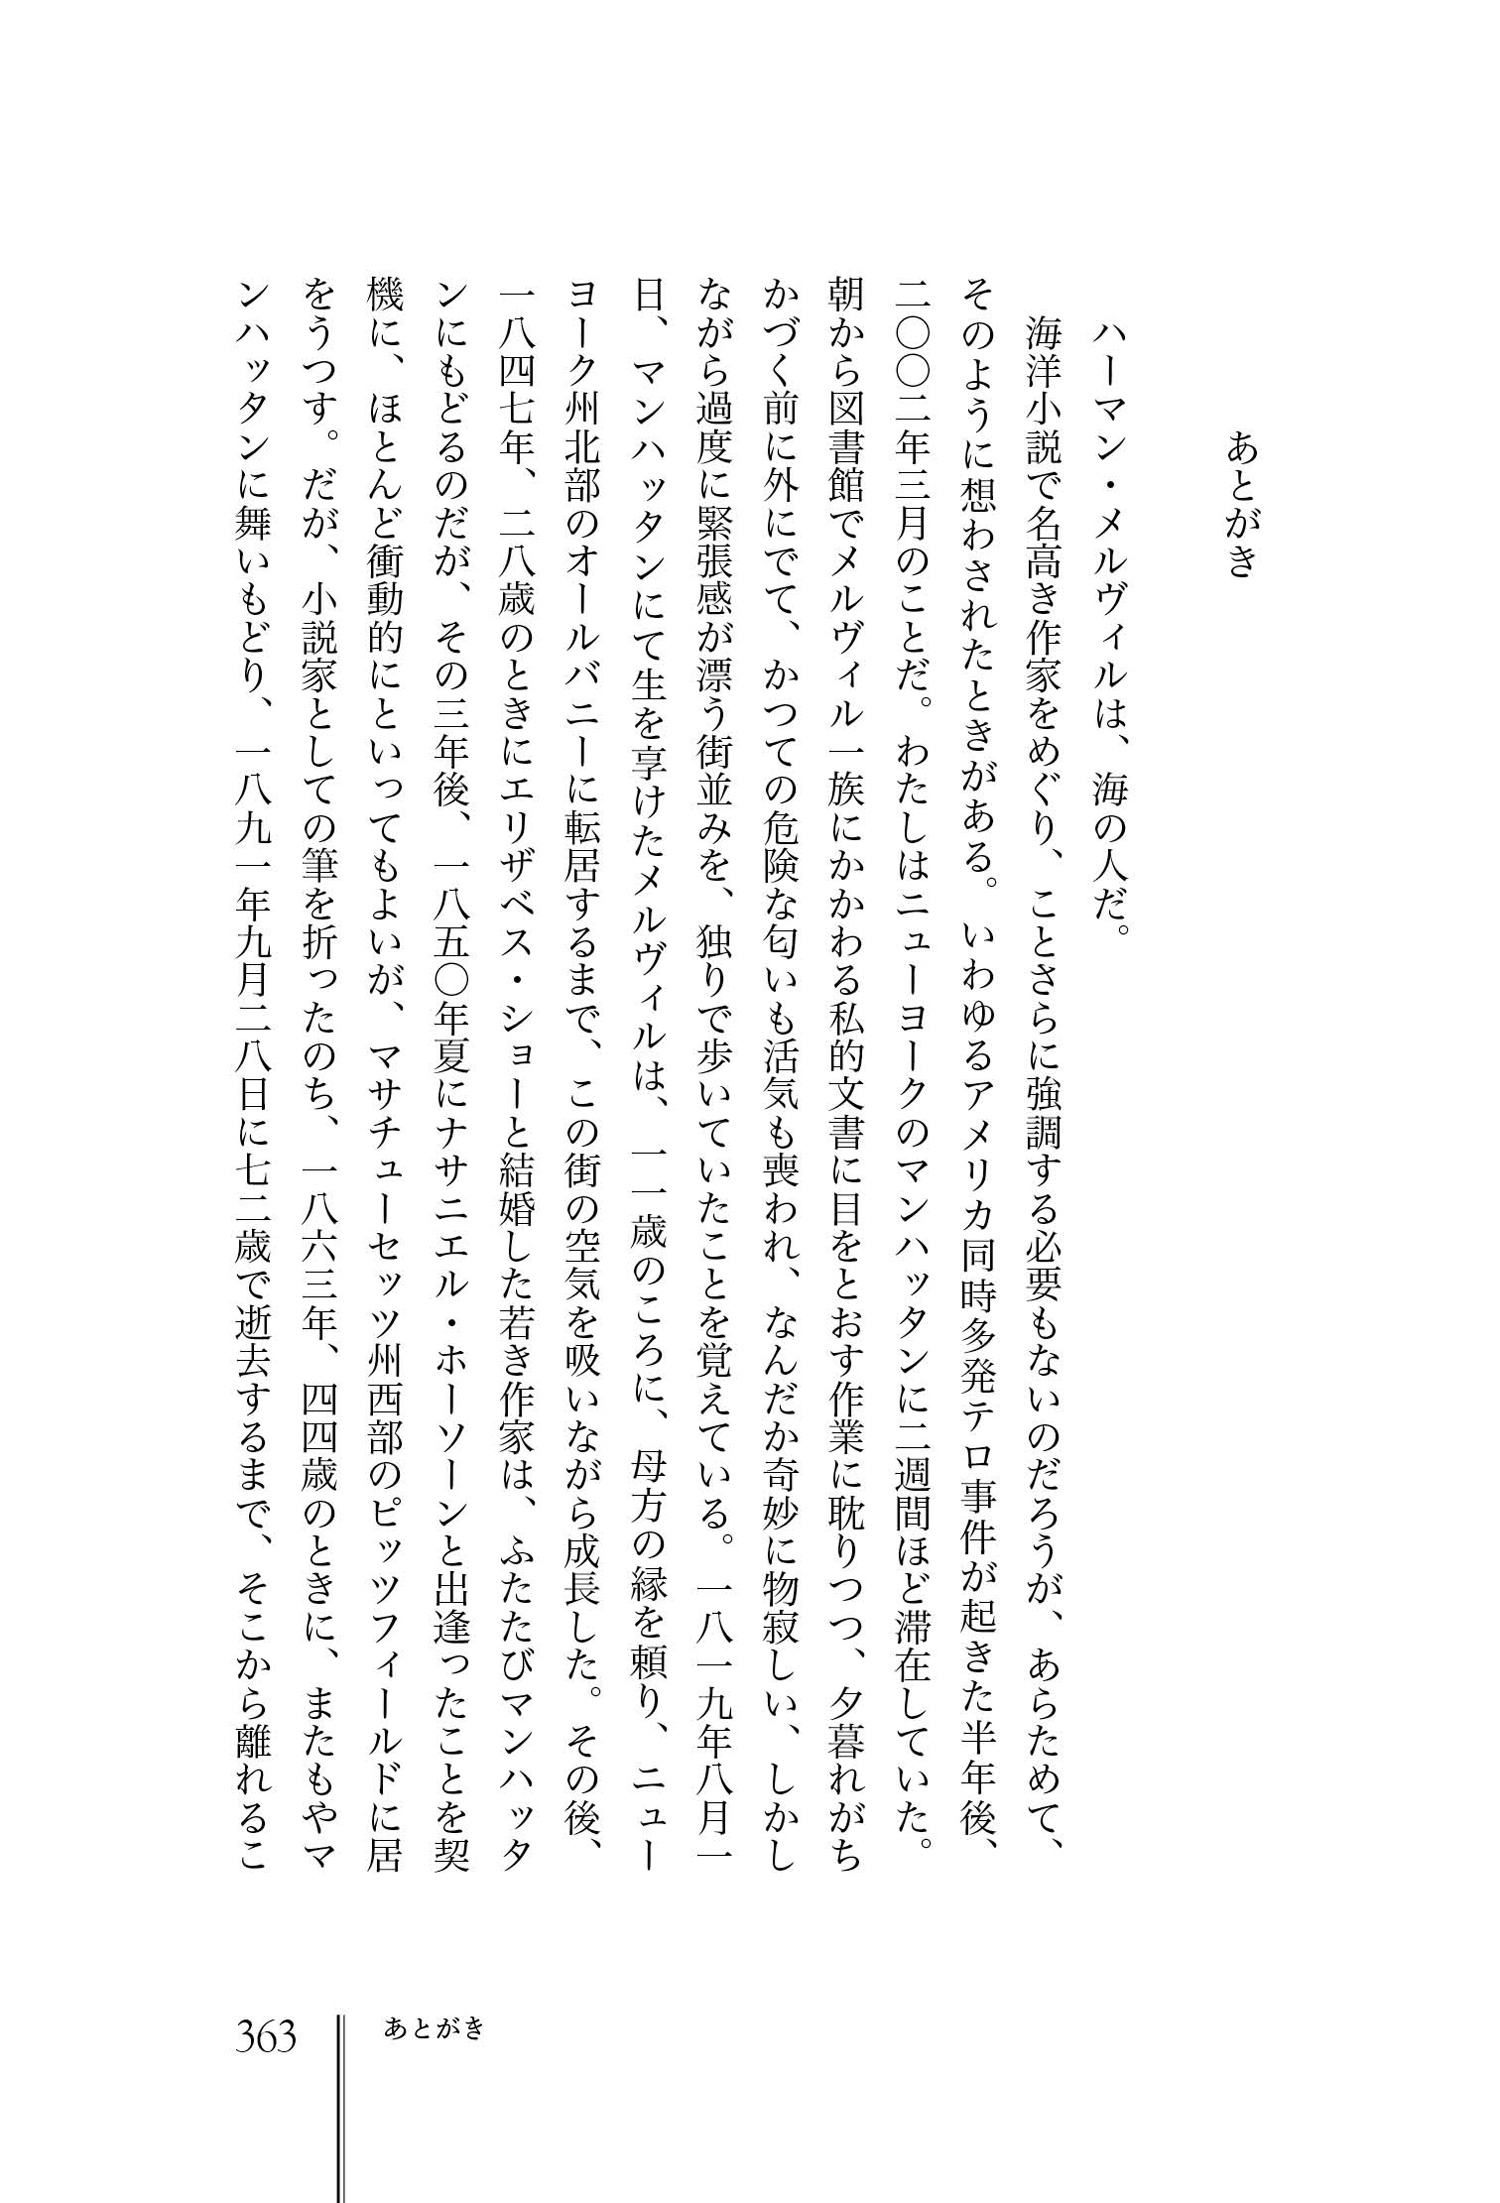 あとがき
ハーマン・メルヴィルは、海の人だ。
海洋小説で名高き作家をめぐり、ことさらに強調する必要もないのだろうが、あらためて、
そのように想わされたときがある。いわゆるアメリカ同時多発テロ事件が起きた半年後、
二〇〇二年三月のことだ。わたしはニューヨークのマンハッタンに二週間ほど滞在していた。
朝から図書館でメルヴィル一族にかかわる私的文書に目をとおす作業に耽りつつ、夕暮れがち
かづく前に外にでて、かつての危険な匂いも活気も喪われ、なんだか奇妙に物寂しい、しかし
ながら過度に緊張感が漂う街並みを、独りで歩いていたことを覚えている。一八一九年八月一
日、マンハッタンにて生を享けたメルヴィルは、一一歳のころに、母方の縁を頼り、ニュー
ヨーク州北部のオールバニーに転居するまで、この街の空気を吸いながら成長した。その後、
一八四七年、二八歳のときにエリザベス・ショーと結婚した若き作家は、ふたたびマンハッタ
ンにもどるのだが、その三年後、一八五〇年夏にナサニエル・ホーソーンと出逢ったことを契
機に、ほとんど衝動的にといってもよいが、マサチューセッツ州西部のピッツフィールドに居
をうつす。だが、小説家としての筆を折ったのち、一八六三年、四四歳のときに、またもやマ
ンハッタンに舞いもどり、一八九一年九月二八日に七二歳で逝去するまで、そこから離れるこ
363
あとがき